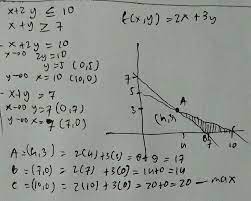 x+2y ≤ 10
x+y ≥ 7
f(x,y) = 2x + 3y
- x+2y = 10
x=0 2y=10
y=5 (0,5)
y=0 x=10 (10,0)
- x+y = 7
x=0 y=7 (0,7)
y=0 x=7 (7,0)
7
5
3
A
(4,3)
4
B
7
10
A = (4,3) = 2(4)+3(3) = 8+9 = 17
B = (7,0) = 2(7) + 3(0) = 14+0 = 14
C = (10,0) = 2(10) + 3(0) = 20+0 = 20 → max